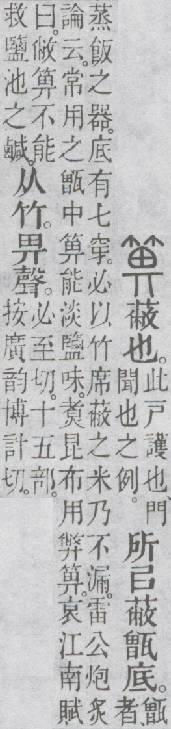 箅蔽也。此戶護也、門
聞也之例。
所㠯蔽甑底。甑
者、
蒸飯之器。底有七穿。必以竹席蔽之米乃不漏。雷公炮炙
論云。常用之甑中箅能淡鹽味。煑昆布用弊箅。哀江南賦
曰。敝箅不能
救鹽池之鹹。
从竹。畀聲。必至切。十五部。
按廣韵博計切。